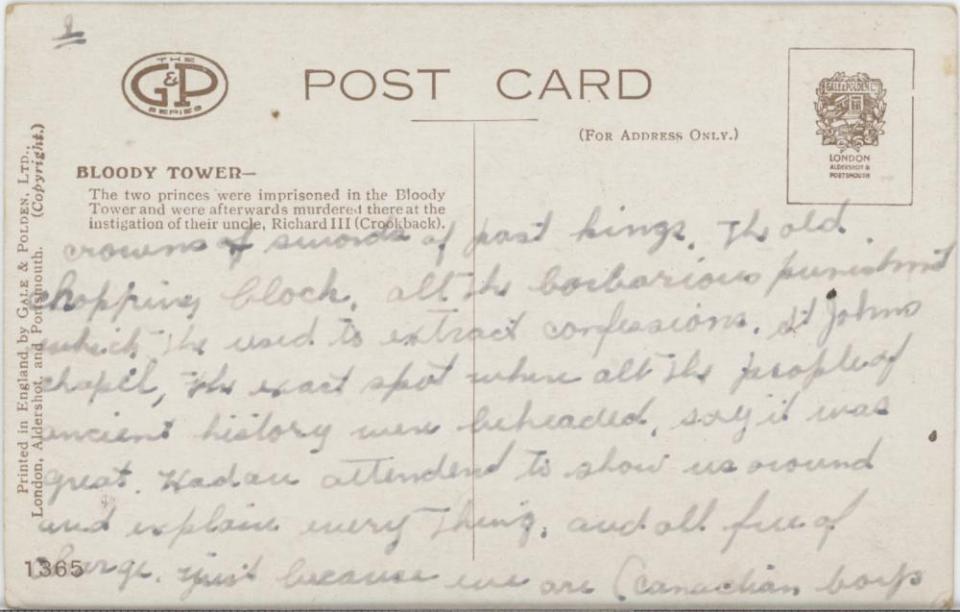 2
THE
G&P
SERIES
POST CARD
(FOR ADDRESS ONLY.)
GALE & POLDEN LTD
LONDON
ALDERSHOT &
PORTSMOUTH
BLOODY TOWER—
The two princes were imprisoned in the Bloody
Tower and were afterwards murdered there at the
instigation of their uncle, Richard III (Crookback).
Printed in England by GALE & POLDEN, LTD.,
London, Aldershot, and Portsmouth. (Copyright.)
crowns of swords of past kings. The old
chopping block, all the barbarious punishment
which the used to extract confessions. St Johns
chapel, the exact spot where all the people of
ancient history were beheaded, say it was
great. Had an attendend to show us around
and explain every thing, and all free of
charge. Just because we are Canadian boys
1365